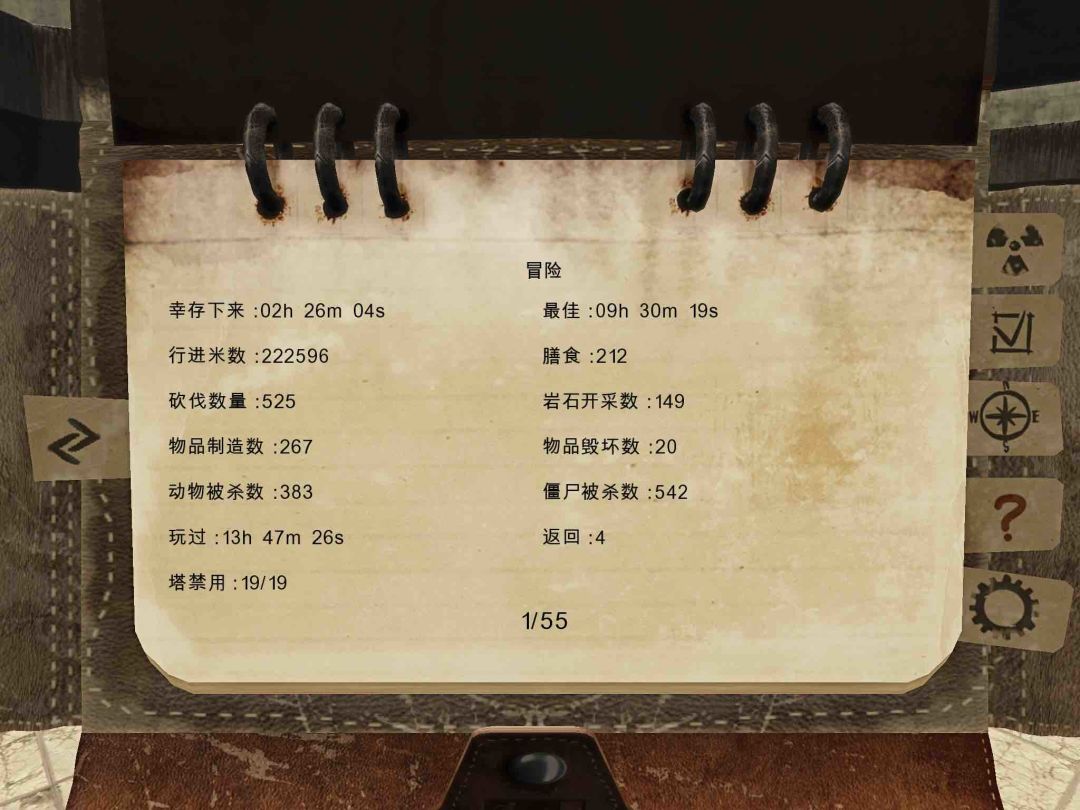 冒险
幸存下来 :02h 26m 04s
最佳 :09h 30m 19s
行进米数 :222596
膳食 :212
砍伐数量 :525
岩石开采数 :149
物品制造数 :267
物品毁坏数 :20
动物被杀数 :383
僵尸被杀数 :542
玩过 :13h 47m 26s
返回 :4
塔禁用 :19/19
1/55
W E
?